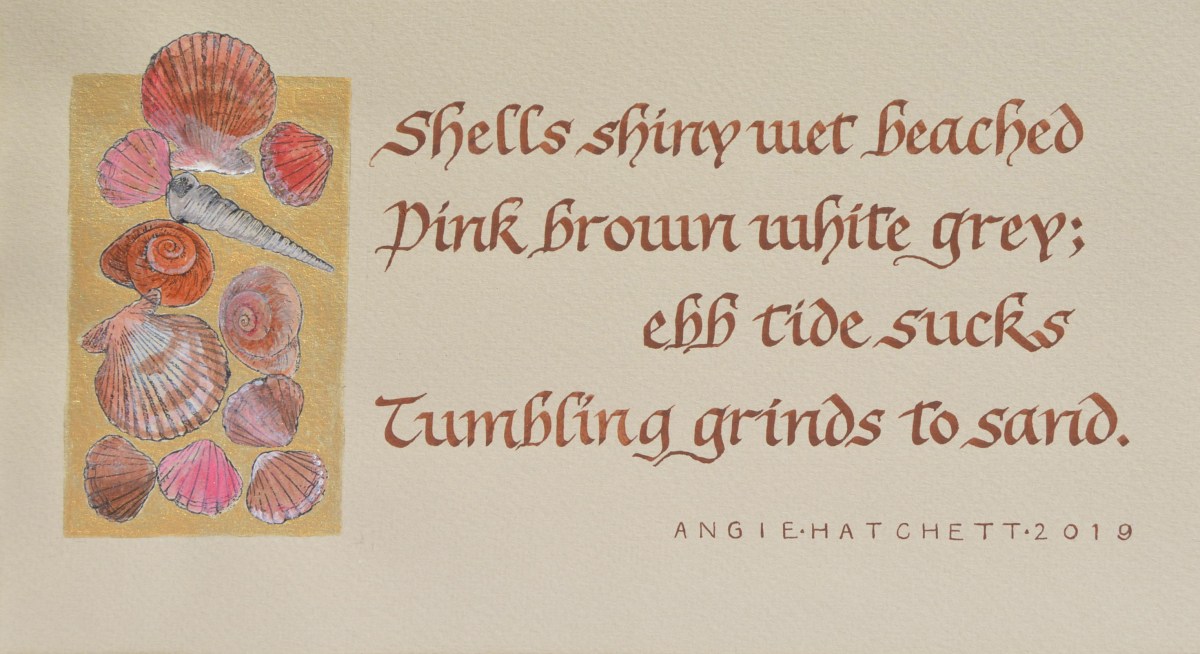 Shells shiny wet beached
Pink brown white grey;
ebb tide sucks
Tumbling grinds to sand.
ANGIE·HATCHETT·2019